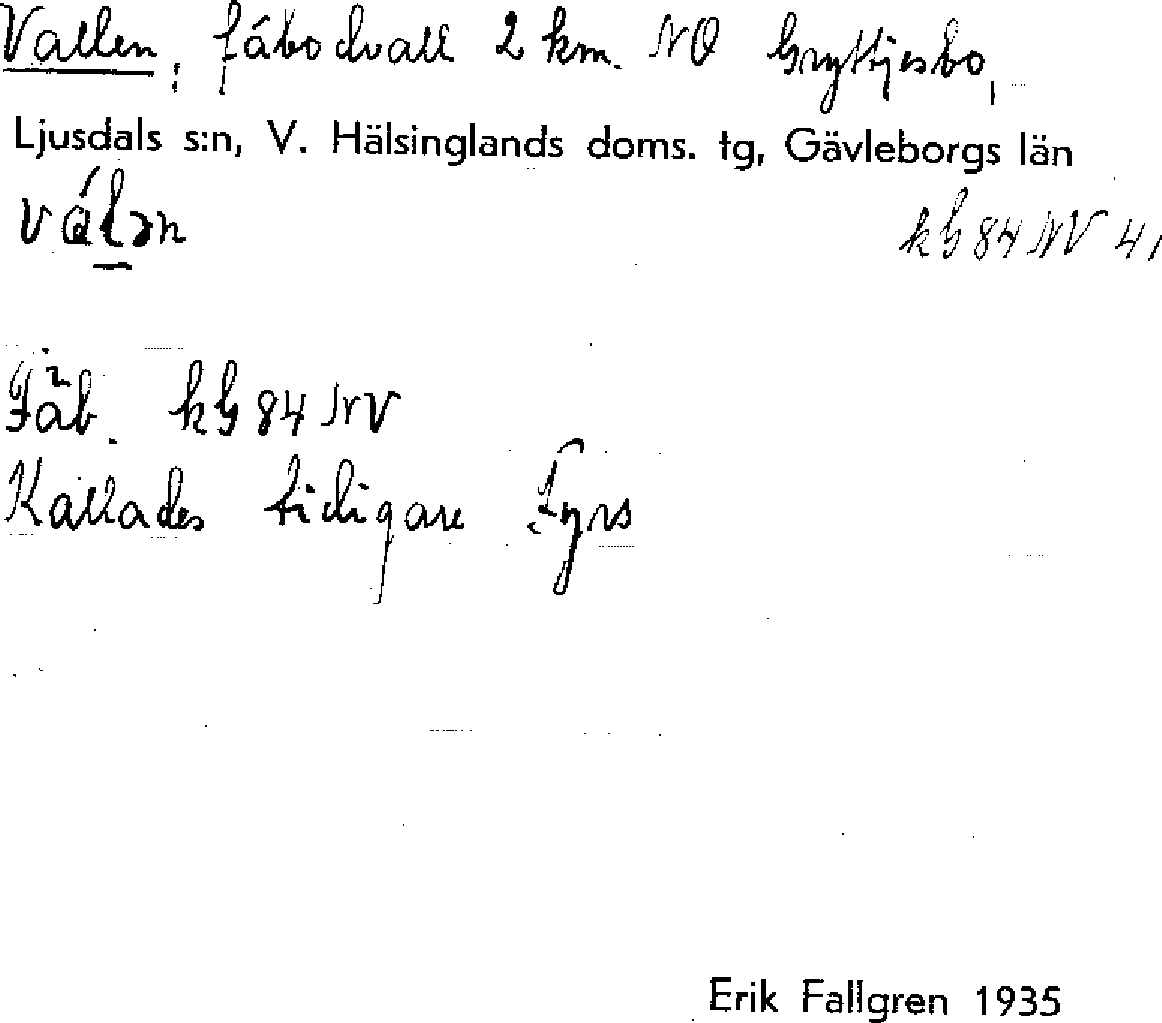 Vallen, fäbodvall 2 km. NO Gryttjesbo,
Ljusdals s:n, V. Hälsinglands doms. tg, Gävleborgs län
válən
kG 84 NV 41
Fäb. kG 84 NV
Kallades tidigare Fyrs
Erik Fallgren 1935